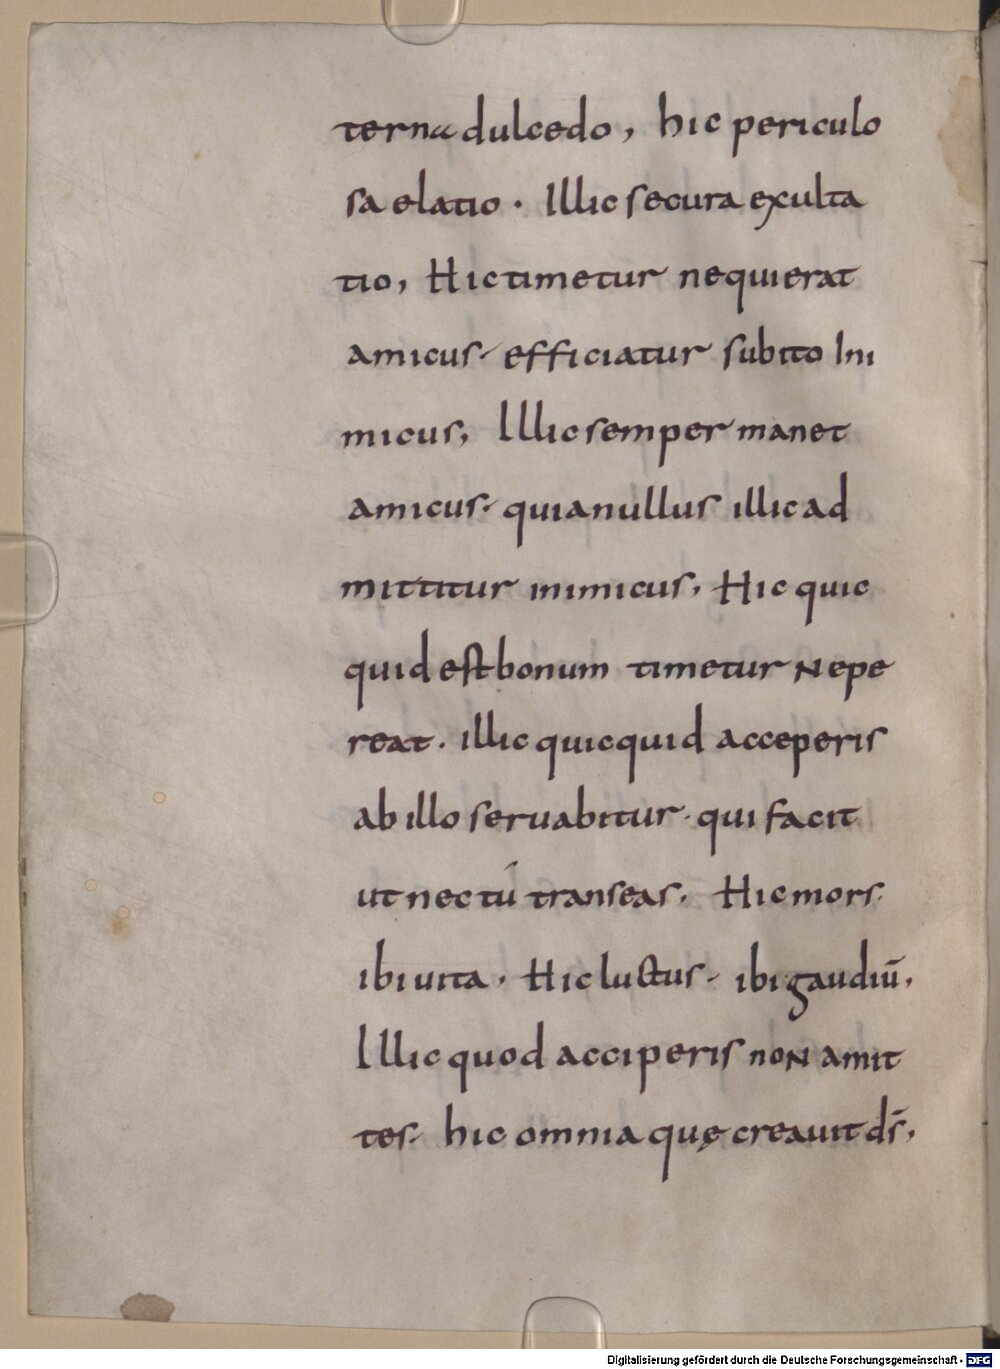 terna dulcedo, hic periculo
sa elatio. Illic secura exculta
tio, Hic timetur nequierat
amicus efficiatur subito Ini
micus, Illic semper manet
amicus. quia nullus illic ad
mittitur inimicus. Hic quic
quid est bonum timetur Nepe
reat. illic quicquid acceperis
ab illo seruabitur. qui facit
ut nec tú transeas. Hic mors.
ibi uita. Hic luctus. ibi gaudiū.
Illic quod acciperis noN amit
tes. hic omnia quę creauit ds̄.
Digitalisierung gefördert durch die Deutsche Forschungsgemeinschaft - DFG